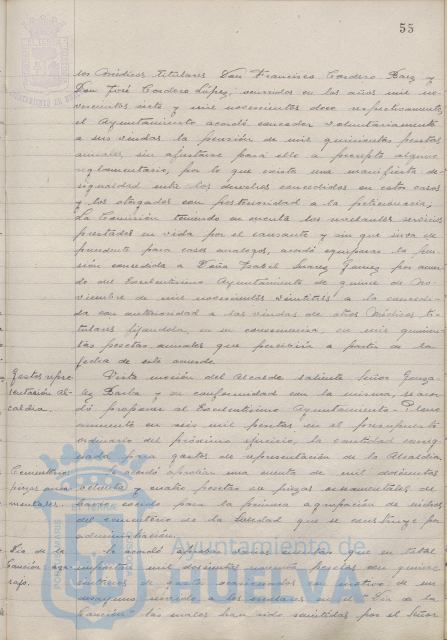 55
los Médicos titulares Don Francisco Cordero Baez y
Don José Cordero López, ocurridos en los años mil no-
vecientos siete y mil novecientos doce respectivamente,
el Ayuntamiento acordó conceder voluntariamente
a sus viudas la pensión de mil quinientas pesetas
anuales, sin ajustarse para ello a precepto alguno
reglamentario, por lo que existe una manifiesta de-
sigualdad entre los derechos concedidos en estos casos
y los otorgados con posterioridad a la peticionaria,
La Comisión teniendo en cuenta los relevantes servicios
prestados en vida por el causante y sin que sirva de
precedente para casos analogos, acordó equiparar la pen-
sión concedida a Doña Isabel Suarez Gomez por acuer-
do del Excelentísimo Ayuntamiento de quince de No-
viembre de mil novecientos veintitres a la concedi-
da con anterioridad a las viudas de otros Médicos ti-
tulares fijandola, en su consecuencia, en mil quinien-
tas pesetas anuales que percibiría a partir de la
fecha de este acuerdo.
Gastos repre-
sentación Al-
caldia.
Vista moción del Alcalde saliente Señor Gonza-
lez Barba y de conformidad con la misma, se acor-
dó proponer al Excelentísimo Ayuntamiento Pleno
aumento en seis mil pesetas en el presupuesto
ordinario del próximo ejercicio, la cantidad consig-
nada para gastos de representación de la Alcaldía
Cementerio
piezas orna-
mentales.
Se acordó aprobar una cuenta de mil doscientas
ochenta y cuatro pesetas de piezas ornamentales de
barro cocido para la primera agrupación de nichos
del cementerio de la Soledad que se construye por
administración.
Día de la
Canción aga-
sajo.
Se acordó aprobar cuentas que en total
importan mil doscientas noventa pesetas con quince
centimos de gastos ocasionados con motivo de un
desayuno servido a los escolares en el "Día de la
Canción" las cuales han sido remitidas por el Señor
Ayuntamiento de
HUELVA